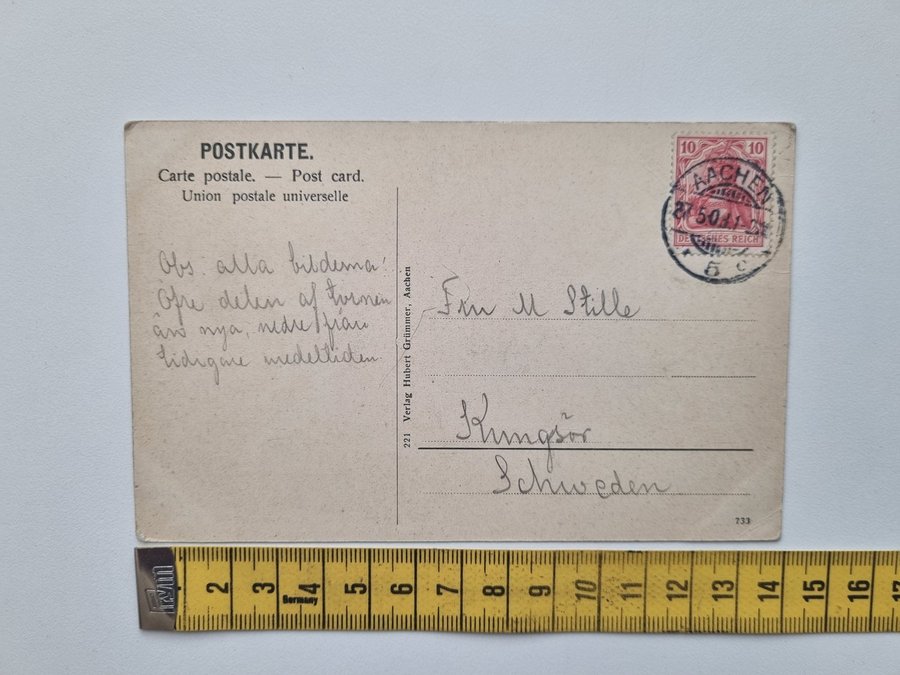 POSTKARTE.
Carte postale. — Post card.
Union postale universelle
10 10
AACHEN
DEUTSCHES REICH
5 c
Obs. alla bilderna
Öfre delen af tornen
är nya, nedre från
tidigare medeltiden
221 Verlag Hubert Grümmer, Aachen
Fru M Stille
Kungsör
Schweden
733
2 3 4 5 6 7 8 9 10 11 12 13 14 15 16 17
Germany